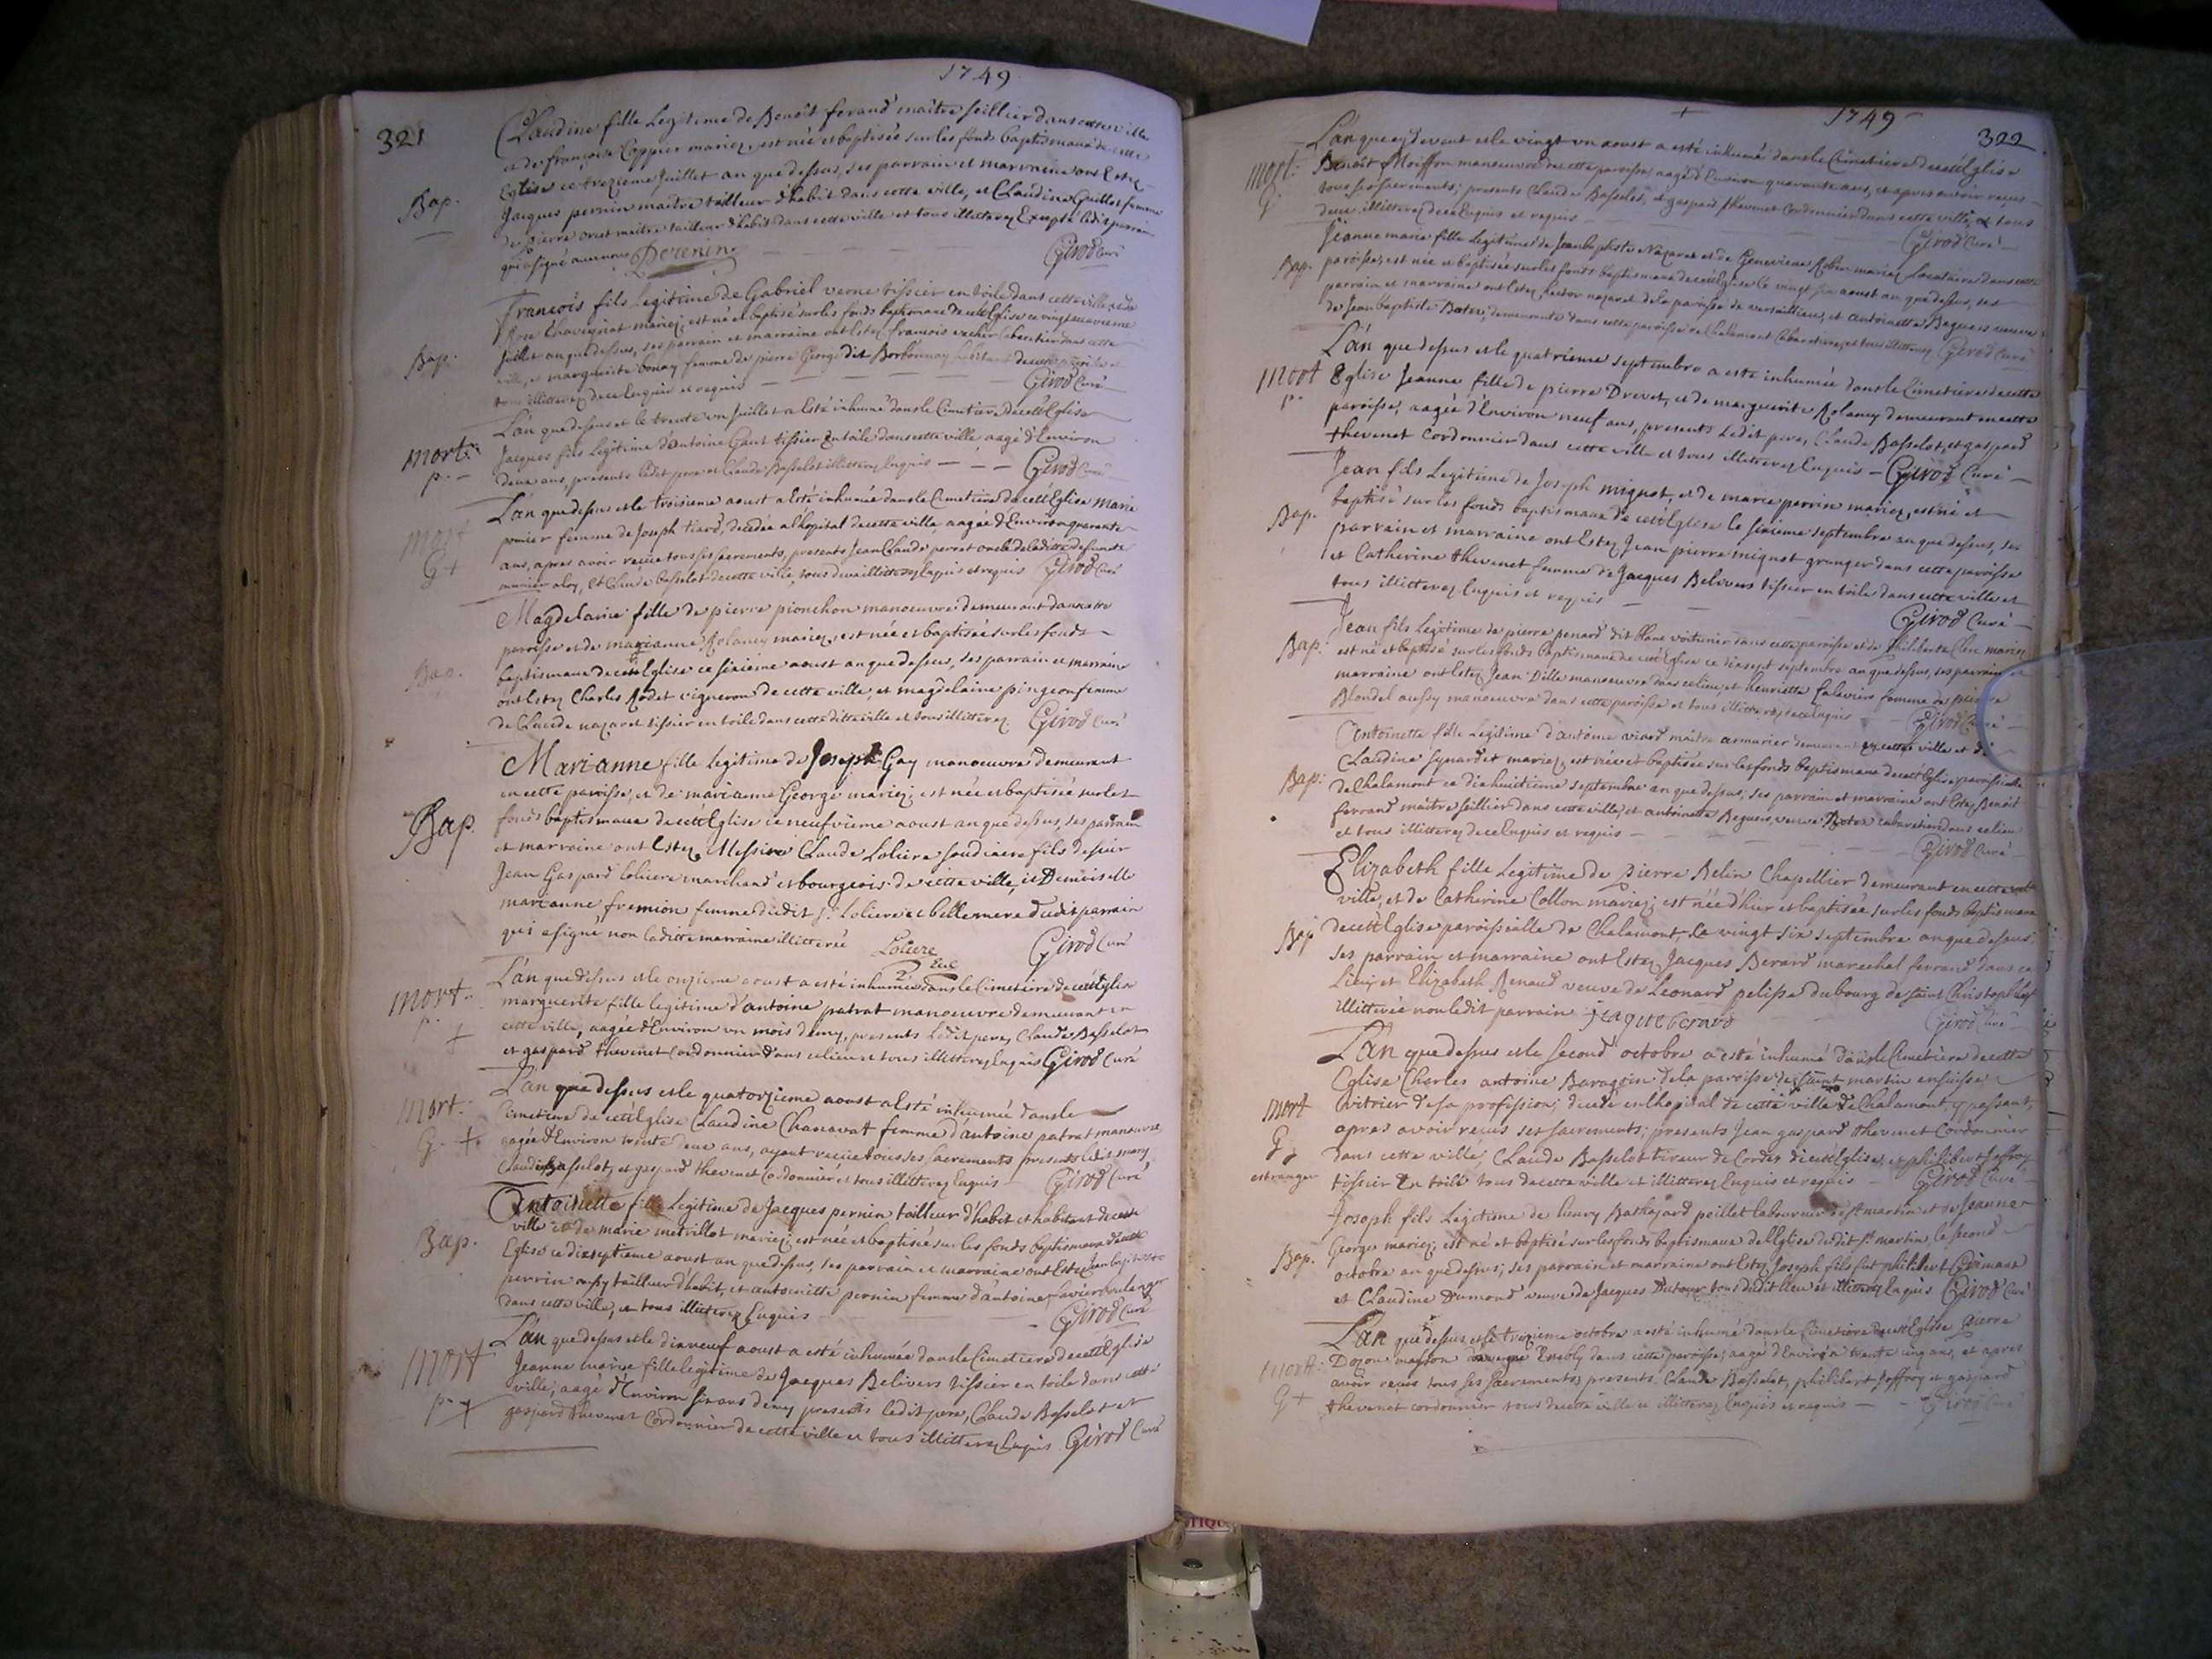 1749
321
Claudine fille Legitime de Benoît ferand maître seillier dans cette ville
et de françoise Coppier mariez, est née et baptisée sur les fonds baptismaux de cette
Bap.
Eglise ce trezieme Juillet an que dessus, ses parrain et marraine ont Estez
Jacques pernin maître tailleur d'habit dans cette ville, et Claudine Guillet femme
de pierre maître tailleur d'habit dans cette ville et tous illitterez Excepté ledit parrain
qui a signé avec nous Girod Curé
françois fils legitime de Gabriel verne tissier en toile dans cette ville et de
mariez, est né et baptisé sur les fonds baptismaux de cett'Eglise ce vingt neuvieme
Bap.
Juillet an que dessus, ses parrain et marraine ont Estez françois vacher Cabaretier dans cette
ville, et marguerite bonay femme de pierre George dit Borbonnay habitants de cette paroisse et
tous illitterez de ce Enquis et requis Girod Curé
L'an que dessus et le trente un Juillet a Esté inhumé dans le Cimetiere de cett'Eglise
mort.
Jacques fils Legitime d'antoine Gaut tissier en toile dans cette ville aagé d'Environ
p.
deux ans, presents ledit pere et Claude Basselot illitterez Enquis Girod Curé
L'an que dessus et le troisieme aoust a Esté inhumée dans le Cimetiere de cett'Eglise marie
mort
ponier femme de Joseph tiard, decedée a l'hopital de cette ville aagée d'Environ quarante
G +
ans, apres avoir reçue tous ses sacrements, presents Jean Claude perret oncle de la ditte defuncte
et Claude Basselot de cette ville, tous deux illitterez Enquis et requis Girod Curé
Magdelaine fille de pierre pionchon manoeuvre demeurant dans cette
paroisse et de marianne Rolancy mariez, est née et baptisée sur les fonds
Bap.
baptismaux de cett'Eglise ce sixieme aoust an que dessus, ses parrain et marraine
ont Estez Charles Rodet vigneron de cette ville et magdelaine pingeon femme
de Claude nazaret tissier en toile dans cette ditte ville et tous illitterez Girod Curé
Marianne fille legitime de Joseph Gay manoeuvre demeurant
en cette paroisse, et de marianne George mariez, est née et baptisée sur les
Bap.
fonds baptismaux de cett'Eglise ce neufvieme aoust an que dessus, ses parrain
et marraine ont Estez Messire Claude Loliere soudiacre fils de sieur
Jean Gaspard loliere marchand et bourgeois de cette ville, et Demoiselle
marianne fremion femme dudit sr. Loliere et bellemere dudit parrain
qui a signé non laditte marraine illitterée Loliere Girod Curé
L'an que dessus et le onzieme aoust a esté inhumée dans le Cimetiere de cett'Eglise
mort.
marguerite fille legitime d'antoine patrat manoeuvre demeurant en
p. +
cette ville, aagée d'Environ un mois demy, presents ledit pere, Claude Basselot
et gaspard thevenet Cordonnier dans ce lieu et tous illitterez Enquis Girod Curé
L'an que dessus et le quatorzieme aoust a Esté inhumée dans le
mort.
Cimetiere de cett'Eglise Claudine Chanavat femme d'antoine patrat manoeuvre
G. +
aagée d'Environ trente deux ans, ayant reçue tous ses sacrements presents ledit mary
Claude Basselot, et gaspard thevenet Cordonnier et tous illitterez Enquis Girod Curé
Antoinette fille Legitime de Jacques pernin tailleur d'habit et habitant de cette
ville et de marie metrillot mariez, est née et baptisée sur les fonds baptismaux de cette
Bap.
Eglise ce dixseptieme aoust an que dessus, ses parrain et marraine ont Estez Jean baptiste
perrin aussy tailleur d'habit, et antoinette pernin femme d'antoine favier boulanger
dans cette ville, et tous illitterez Enquis Girod Curé
L'an que dessus et le dixneuf aoust a esté inhumée dans le Cimetiere de cett'Eglise
mort
Jeanne marie fille legitime de Jacques Belivers tissier en toile dans cette
p. +
ville, aagé d'Environ six ans demy presents ledit pere, Claude Basselot et
gaspard thevenet Cordonnier de cette ville et tous illitterez Enquis Girod Curé
1749
322
L'an que dessus et le vingt un aoust a esté inhumé dans le Cimetiere de cett'Eglise
mort.
Benoît Moisson manoeuvre de cette paroisse, aagé d'Environ quarante ans, et apres avoir reçus
G.
tous ses sacrements; presents Claude Basselot, et gaspard thevenet Cordonnier dans cette ville, et tous
deux illitterez de ce Enquis et requis Girod Curé
Jeanne marie fille Legitime de Jean baptiste Nazaret et de Genevieve Robin mariez Locataires dans cette
Bap.
paroisse, est née et baptisée sur les fonds baptismaux de cett'Eglise le vingt aoust an que dessus, ses
parrain et marraine ont Estez hector nazaret de la paroisse de versaillieux, et antoinette Beguers veuve
de Jean baptiste Botex, demeurante dans cette paroisse de Chalamont Cabaretiere, et tous illitterez Girod Curé
L'an que dessus et le quatrieme septembre a esté inhumée dans le Cimetiere de cette
mort
Eglise Jeanne fille de pierre Drevet, et de marguerite Rolancy demeurant en cette
p.
paroisse, aagée d'Environ neuf ans, presents ledit pere, Claude Basselot, et gaspard
thevenet Cordonnier dans cette ville et tous illitterez Enquis Girod Curé
Jean fils Legitime de Joseph mignot, et de marie perrin mariez, est né et
Bap.
baptisé sur les fonds baptismaux de cett'Eglise le sixieme septembre an que dessus, ses
parrain et marraine ont Estez Jean pierre mignot granger dans cette paroisse
et Catherine thevenet femme de Jacques Belivers tissier en toile dans cette ville et
tous illitterez Enquis et requis Girod Curé
Jean fils Legitime de pierre penard dit blanc voiturier dans cette paroisse et de philiberte Clere mariez
Bap.
est né et baptisé sur les fonds baptismaux de cett'Eglise ce dixsept septembre an que dessus, ses parrain et
marraine ont Estez Jean Dille manoeuvre dans ce lieu, et henriette falavier femme de pierre
Blondel aussy manoeuvre dans cette paroisse et tous illitterez de ce Enquis Girod Curé
Antoinette fille Legitime d'antoine viard maître armurier demeurant en cette ville et de
Claudine synardet mariez, est née et baptisée sur les fonds baptismaux de cett'Eglise paroissialle
Bap.
de Chalamont ce dixhuitieme septembre an que dessus; ses parrain et marraine ont Estez Benoît
ferrand maître seillier dans cette ville, et antoinette Beguers, veuve Botex cabaretier dans ce lieu
et tous illitterez de ce Enquis et requis Girod Curé
Elizabeth fille Legitime de pierre Belin Chapellier demeurant en cette
ville, et de Catherine Collon mariez; est née d'hier et baptisée sur les fonds baptismaux
Bap
de cett'Eglise paroissialle de Chalamont, le vingt six septembre an que dessus,
ses parrain et marraine ont Estez Jacques Berard marechal ferrand dans ce
Lieu, et Elizabeth Renaud veuve de Leonard pelisse du bourg de saint Christophle
illitterée non ledit parrain jaque berard Girod Curé
L'an que dessus et le second octobre a esté inhumé dans le Cimetiere de cette
Eglise Charles antoine Baragoin de la paroisse de saint martin en suisse
mort
vitrier de sa profession; decedé en l'hopital de cette ville de Chalamont, y passant,
apres avoir reçus ses sacrements; presents Jean gaspard thevenet Cordonnier
G.
dans cette ville; Claude Basselot tireur de Cordes de cett'Eglise, et philibert Joffroy
estranger
tissier en toile tous de cette ville et illitterez Enquis et requis Girod Curé
Joseph fils Legitime de henry Bathezard peillet laboureur de st. martin et de Jeanne
Bap.
George mariez, est né et baptisé sur les fonds baptismaux de l'Eglise dudit st. martin, le second
octobre an que dessus; ses parrain et marraine ont Estez Joseph fils de fut philibert
et Claudine Dumond veuve de Jacques Dutour tous dudit lieu et illitterez Enquis Girod Curé
L'an que dessus et le trezieme octobre a esté inhumé dans le Cimetiere de cett'Eglise pierre
mort.
Dozon masson Estably dans cette paroisse; aagé d'Environ trente cinq ans, et apres
avoir reçus tous ses sacrements, presents Claude Basselot, philibert Joffroy et gaspard
G +
thevenet cordonnier tous de cette ville et illitterez Enquis et requis Girod